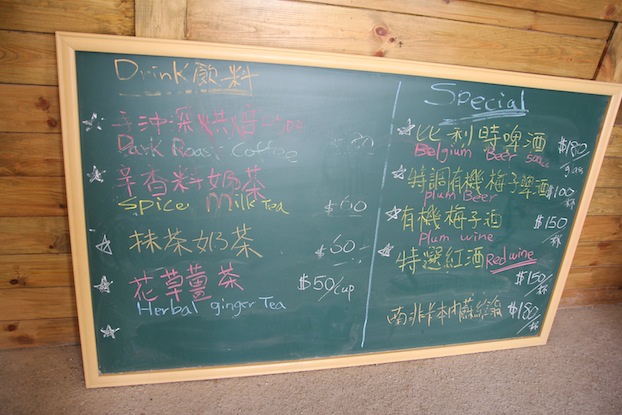 Drink 飲料
手沖深烘焙
Dark Roast Coffee
辛香料奶茶 $60
Spice Milk Tea
抹茶奶茶 $60/
花草薑茶 $50/cup
Herbal ginger Tea
Special
比利時啤酒 $180
Belgium Beer
特調有機梅子啤酒 $100
plum Beer /杯
有機梅子酒 $150
Plum wine /杯
特選紅酒 Red wine
$150/杯
南非 $180/杯